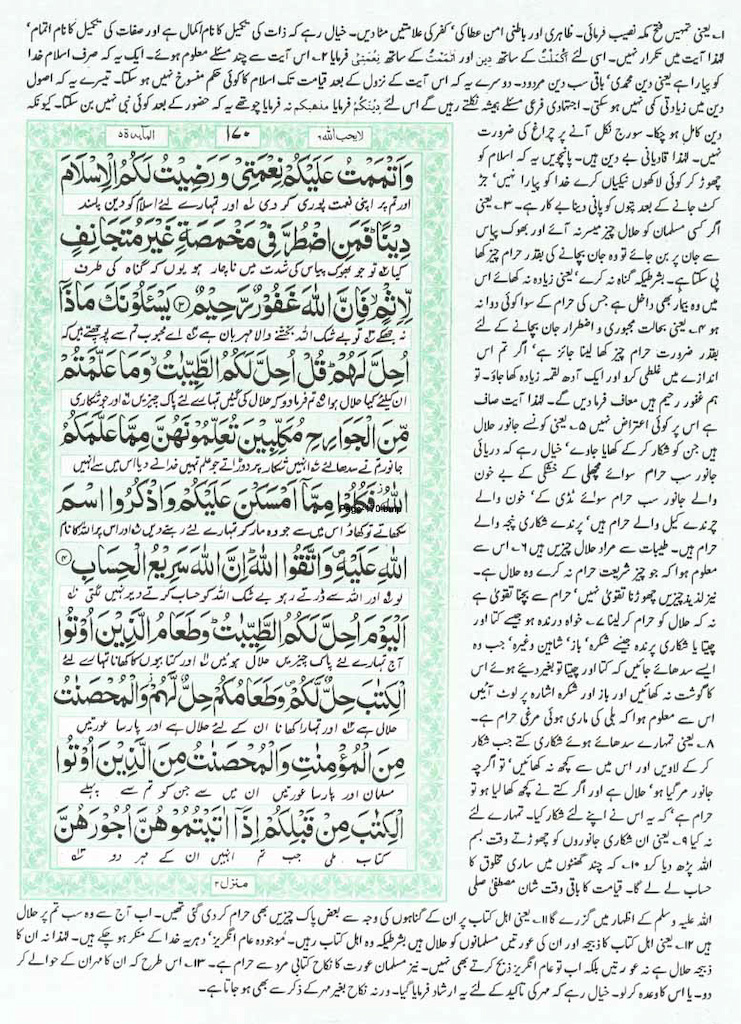 ۱۔ یعنی تمہیں فتح مکہ نصیب فرمائی۔ ظاہری اور باطنی امن عطا کی، کفر کی علامتیں مٹا دیں۔ خیال رہے کہ ذات کی تکمیل کا نام اکمال ہے اور صفات کی تکمیل کا نام اتمام،
لہٰذا آیت میں تکرار نہیں۔ اسی لئے اَکْمَلْتُ کے ساتھ دین اور اَتْمَمْتُ کے ساتھ نِعْمَتِیْ فرمایا ۲۔ اس آیت سے چند مسئلے معلوم ہوئے۔ ایک یہ کہ صرف اسلام خدا
کو پیارا ہے یعنی دین محمدی، باقی سب دین مردود۔ دوسرے یہ کہ اس آیت کے نزول کے بعد قیامت تک اسلام کا کوئی حکم منسوخ نہیں ہو سکتا۔ تیسرے یہ کہ اصول
دین میں زیادتی کمی نہیں ہو سکتی۔ اجتہادی فرعی مسئلے ہمیشہ نکلتے رہیں گے اس لئے دِیْنَکُمْ فرمایا مذھبکم نہ فرمایا چوتھے یہ کہ حضور کے بعد کوئی نبی نہیں بن سکتا۔ کیونکہ
دین کامل ہو چکا۔ سورج نکل آنے پر چراغ کی ضرورت
نہیں۔ لہٰذا قادیانی بے دین ہیں۔ پانچویں یہ کہ اسلام کو
چھوڑ کر کوئی لاکھوں نیکیاں کرے خدا کو پیارا نہیں، جڑ
کٹ جانے کے بعد پتوں کو پانی دینا بے کار ہے۔ ۳۔ یعنی
اگر کسی مسلمان کو حلال چیز میسر نہ آئے اور بھوک پیاس
سے جان پر بن جائے تو وہ جان بچانے کی بقدر حرام چیز کھا
پی سکتا ہے۔ بشرطیکہ گناہ نہ کرے، یعنی زیادہ نہ کھائے اس
میں وہ بیمار بھی داخل ہے جس کی حرام کے سوا کوئی دوا نہ
ہو ۴۔ یعنی بحالت مجبوری و اضطرار جان بچانے کے لئے
بقدر ضرورت حرام چیز کھا لینا جائز ہے، اگر تم اس
اندازے میں غلطی کرو اور ایک آدھ لقمہ زیادہ کھا جاؤ۔ تو
ہم غفور رحیم ہیں معاف فرما دیں گے۔ لہٰذا آیت صاف
ہے اس پر کوئی اعتراض نہیں ۵۔ یعنی کونسے جانور حلال
ہیں جن کو شکار کر کے کھایا جاوے، خیال رہے کہ دریائی
جانور سب حرام سوائے مچھلی کے خشکی کے بے خون
والے جانور سب حرام سوائے ٹڈی کے، خون والے
چرندے کیل والے حرام ہیں، پرندے شکاری پنجہ والے
حرام ہیں۔ طیبات سے مراد حلال چیزیں ہیں ۶۔ اس سے
معلوم ہوا کہ جو چیز شریعت حرام نہ کرے وہ حلال ہے۔
نیز لذیذ چیزیں چھوڑنا تقویٰ نہیں، حرام سے بچنا تقویٰ ہے
نہ کہ حلال کو حرام کر لینا ۷۔ خواہ درندہ ہو جیسے کتا اور
چیتا یا شکاری پرندہ جیسے شکرہ، باز، شاہین وغیرہ، جب وہ
ایسے سدھائے جائیں کہ کتا اور چیتا تو بغیر دیئے ہوئے اس
کا گوشت نہ کھائیں اور باز اور شکرہ اشارہ پر لوٹ آئیں
اس سے معلوم ہوا کہ بلی کی ماری ہوئی مرغی حرام ہے۔
۸۔ یعنی تمہارے سدھائے ہوئے شکاری کتے جب شکار
کر کے لاویں اور اس میں سے کچھ نہ کھائیں، تو اگرچہ
جانور مر گیا ہو، حلال ہے اور اگر کتے نے کچھ کھا لیا ہو تو
حرام ہے، کہ یہ اس نے اپنے لئے شکار کیا۔ تمہارے لئے
نہ کیا ۹۔ یعنی ان شکاری جانوروں کو چھوڑتے وقت بسم
اللہ پڑھ دیا کرو ۱۰۔ کہ چند گھنٹوں میں ساری مخلوق کا
حساب لے لے گا۔ قیامت کا باقی وقت شان مصطفیٰ صلی
لایحب اللہ ۶
۱۷۰
المآئدۃ ۵
وَاَتْمَمْتُ عَلَیْكُمْ نِعْمَتِیْ وَرَضِیْتُ لَكُمُ الْاِسْلَامَ
اور تم پر اپنی نعمت پوری کر دی اور تمہارے لئے اسلام کو دین پسند
دِیْنًا ؕ فَمَنِ اضْطُرَّ فِیْ مَخْمَصَةٍ غَیْرَ مُتَجَانِفٍ
کیا تو جو بھوک پیاس کی شدت میں ناچار ہو یوں کہ گناہ کی طرف
لِّاِثْمٍ ۙ فَاِنَّ اللّٰهَ غَفُوْرٌ رَّحِیْمٌ ﴿۳﴾ یَسْـَٔلُوْنَكَ مَاذَاۤ
نہ جھکے تو بے شک اللہ بخشنے والا مہربان ہے اے محبوب تم سے پوچھتے ہیں کہ
اُحِلَّ لَهُمْ ؕ قُلْ اُحِلَّ لَكُمُ الطَّیِّبٰتُ ۙ وَمَا عَلَّمْتُمْ
ان کیلئے کیا حلال ہوا تم فرما دو کہ حلال کی گئیں تمہارے لئے پاک چیزیں اور جو شکاری
مِّنَ الْجَوَارِحِ مُكَلِّبِیْنَ تُعَلِّمُوْنَهُنَّ مِمَّا عَلَّمَكُمُ
جانور تم نے سدھا لئے انہیں شکار پر دوڑاتے جو علم تمہیں خدا نے دیا اس میں سے انہیں
اللّٰهُ ؗ فَكُلُوْا مِمَّاۤ اَمْسَكْنَ عَلَیْكُمْ وَاذْكُرُوا اسْمَ
Page-170.bmp
سکھاتے تو کھاؤ اس میں سے جو وہ مار کر تمہارے لئے رہنے دیں اور اس پر اللہ کا نام
اللّٰهِ عَلَیْهِ ۪ وَاتَّقُوا اللّٰهَ ؕ اِنَّ اللّٰهَ سَرِیْعُ الْحِسَابِ ﴿۴﴾
لو اور اللہ سے ڈرتے رہو بے شک اللہ کو حساب کرتے دیر نہیں لگتی
اَلْیَوْمَ اُحِلَّ لَكُمُ الطَّیِّبٰتُ ؕ وَطَعَامُ الَّذِیْنَ اُوْتُوا
آج تمہارے لئے پاک چیزیں حلال ہوئیں اور کتابیوں کا کھانا تمہارے لئے
الْكِتٰبَ حِلٌّ لَّكُمْ ۪ وَطَعَامُكُمْ حِلٌّ لَّهُمْ ؗ وَالْمُحْصَنٰتُ
حلال ہے اور تمہارا کھانا ان کے لئے حلال ہے اور پارسا عورتیں
مِنَ الْمُؤْمِنٰتِ وَالْمُحْصَنٰتُ مِنَ الَّذِیْنَ اُوْتُوا
مسلمان اور پارسا عورتیں ان میں سے جن کو تم سے پہلے
الْكِتٰبَ مِنْ قَبْلِكُمْ اِذَاۤ اٰتَیْتُمُوْهُنَّ اُجُوْرَهُنَّ
کتاب ملی جب تم انہیں ان کے مہر دو
منزل ۲
اللہ علیہ وسلم کے اظہار میں گزرے گا ۱۱۔ یعنی اہل کتاب پر ان کے گناہوں کی وجہ سے بعض پاک چیزیں بھی حرام کر دی گئی تھیں۔ اب آج سے وہ سب تم پر حلال
ہیں ۱۲۔ یعنی اہل کتاب کا ذبیحہ اور ان کی عورتیں مسلمانوں کو حلال ہیں بشرطیکہ وہ اہل کتاب رہیں۔ موجودہ عام انگریز، دہریہ خدا کے منکر ہو چکے ہیں۔ لہٰذا نہ ان کا
ذبیحہ حلال ہے نہ عورتیں بلکہ اب تو عام انگریز ذبح کرتے بھی نہیں۔ نیز مسلمان عورت کا نکاح کتابی مرد سے حرام ہے۔ ۱۳۔ اس طرح کہ ان کا مہران کے حوالے کر
دو۔ یا اس کا وعدہ کر لو۔ خیال رہے کہ مہر کی تاکید کے لئے یہ ارشاد فرمایا گیا۔ ورنہ نکاح بغیر مہر کے ذکر سے بھی ہو جاتا ہے۔